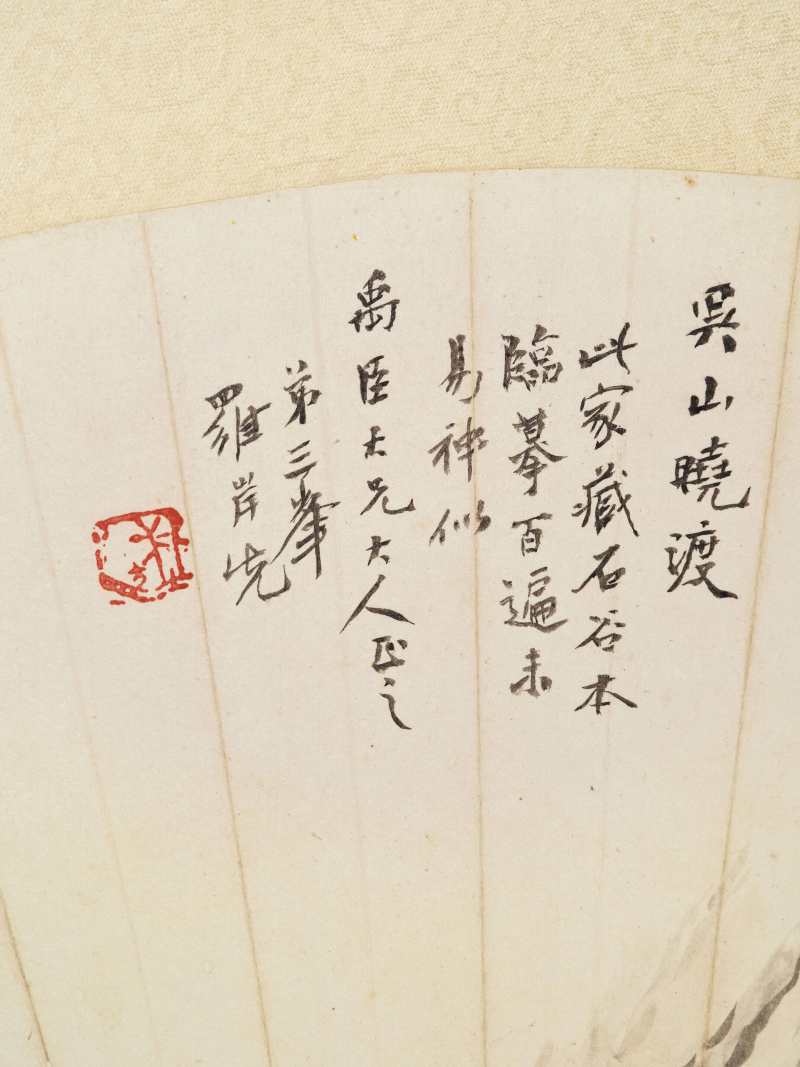 吳山曉渡
此家藏石谷本
臨摹百遍未
易神似
禹臣大兄大人正之
弟三峯
羅岸先